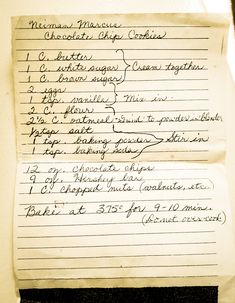 Neiman Marcus
Chocolate Chip Cookies
1 C. butter
1 C. white sugar } Cream together
1 C. brown sugar
2 eggs
1 tsp. vanilla } Mix in
2 C. flour
2 1/2 C. oatmeal - Grind to powder in blender
1/2 tsp salt
1 tsp. baking powder } Stir in
1 tsp. baking soda
12 oz. chocolate chips
9 oz. Hershey bar
1 C. chopped nuts (walnuts, etc.)
Bake at 375° for 9-10 min.
(Do not over cook)